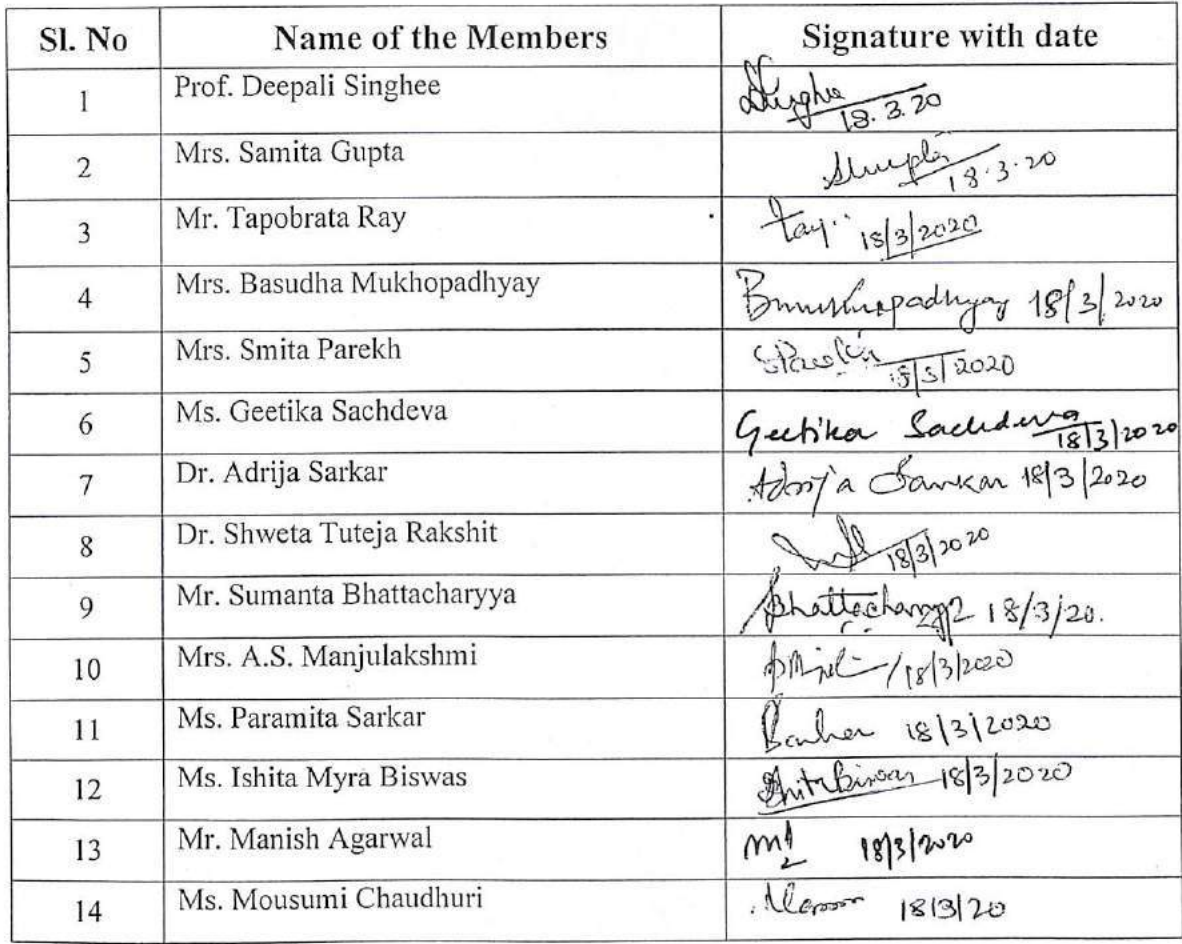 Sl. No Name of the Members Signature with date
1 Prof. Deepali Singhee 18.3.20
2 Mrs. Samita Gupta 18.3.20
3 Mr. Tapobrata Ray 18/3/2020
4 Mrs. Basudha Mukhopadhyay Bmukhopadhyay 18/3/2020
5 Mrs. Smita Parekh 18/3/2020
6 Ms. Geetika Sachdeva Geetika Sachdeva 18/3/2020
7 Dr. Adrija Sarkar Adrija Sarkar 18/3/2020
8 Dr. Shweta Tuteja Rakshit 18/3/2020
9 Mr. Sumanta Bhattacharyya 18/3/20.
10 Mrs. A.S. Manjulakshmi 18/3/2020
11 Ms. Paramita Sarkar 18/3/2020
12 Ms. Ishita Myra Biswas 18/3/2020
13 Mr. Manish Agarwal 18/3/2020
14 Ms. Mousumi Chaudhuri 18/3/20